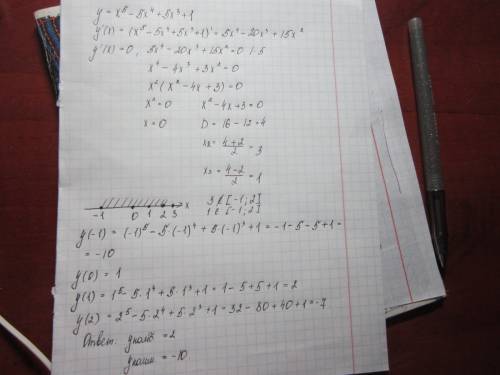 y = x⁵ - 5x⁴ + 5x³ + 1
y'(x) = (x⁵ - 5x⁴ + 5x³ + 1)' = 5x⁴ - 20x³ + 15x²
y'(x) = 0, 5x⁴ - 20x³ + 15x² = 0 | : 5
x⁴ - 4x³ + 3x² = 0
x² (x² - 4x + 3) = 0
x² = 0 x² - 4x + 3 = 0
x = 0 D = 16 - 12 = 4
x₁ = (4+2)/2 = 3
x₂ = (4-2)/2 = 1
-1 0 1 2 3 x
3 ∉ [-1; 2]
1 ∈ [-1; 2]
y(-1) = (-1)⁵ - 5·(-1)⁴ + 5·(-1)³ + 1 = -1 - 5 - 5 + 1 =
= -10
y(0) = 1
y(1) = 1⁵ - 5·1⁴ + 5·1³ + 1 = 1 - 5 + 5 + 1 = 2
y(2) = 2⁵ - 5·2⁴ + 5·2³ + 1 = 32 - 80 + 40 + 1 = -7
Ответ: yнаиб = 2
yнаим = -10.